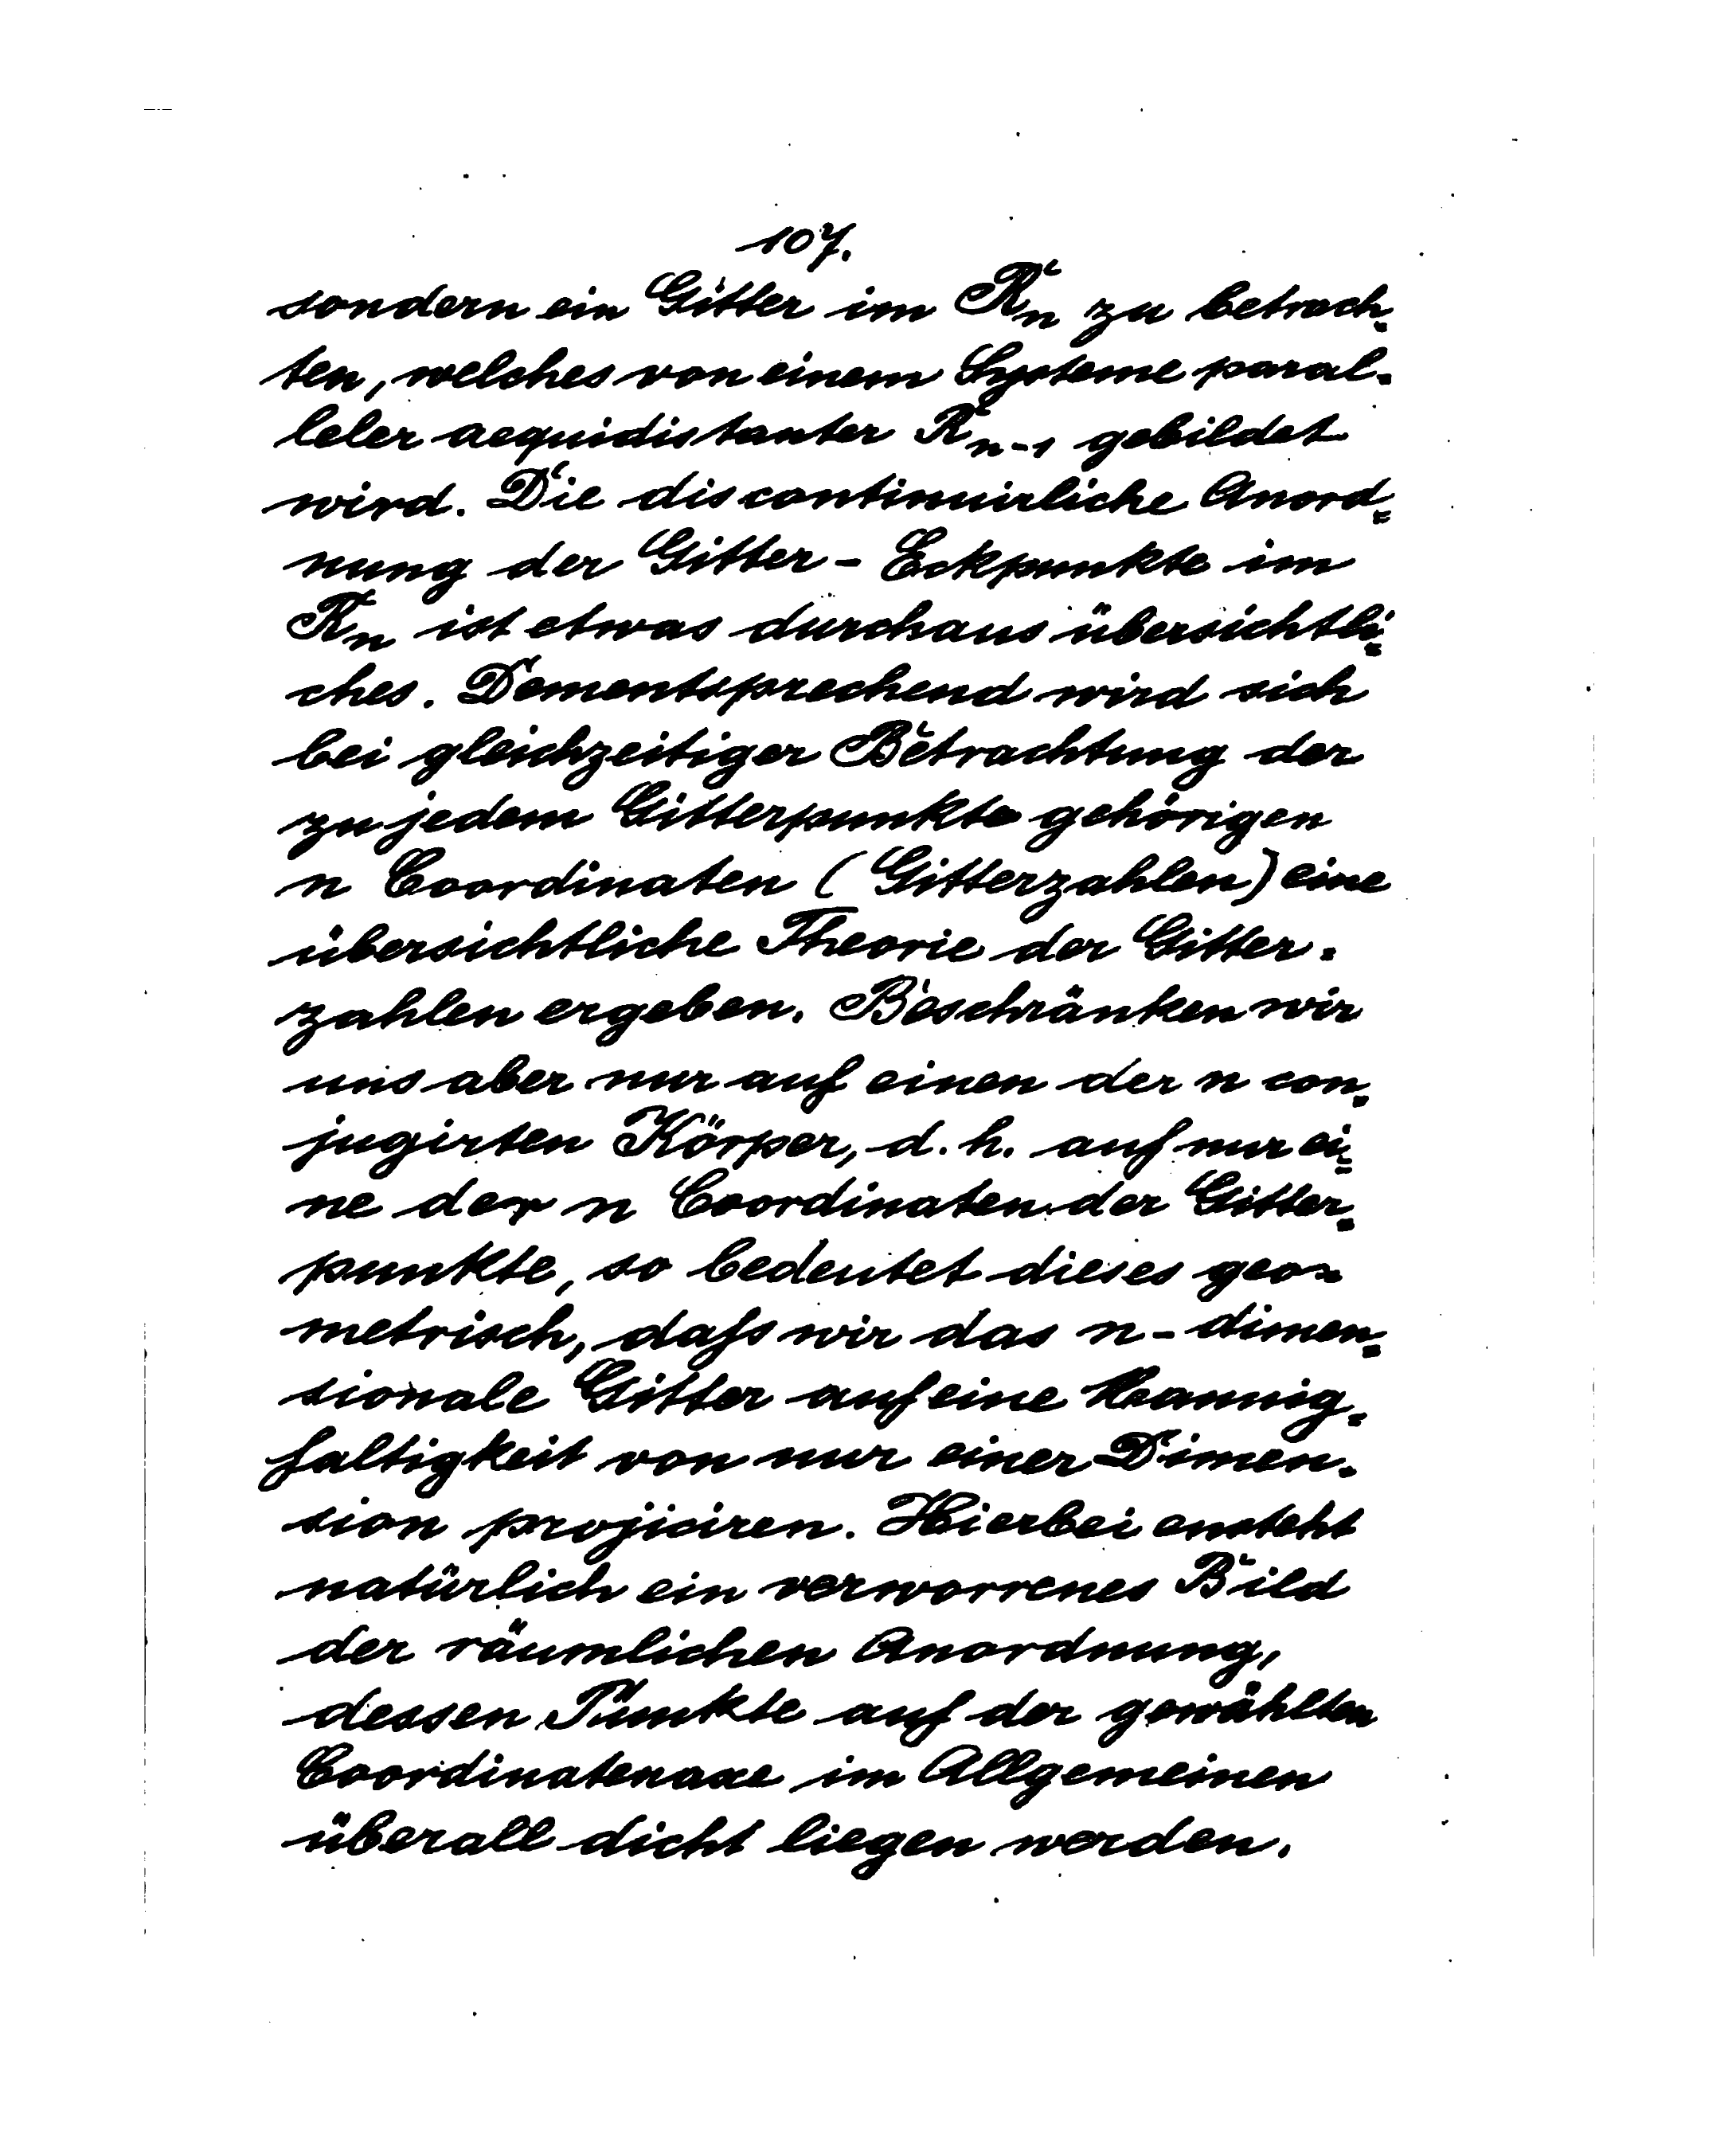 107.
sondern ein Gitter im Rₙ zu betrach-
ten, welches von einem Systeme paral-
leler aequidistanter Rₙ₋₁ gebildet
wird. Die discontinuirliche Anord=
nung der Gitter - Eckpunkte im
Rₙ ist etwas durchaus übersichtli=
ches. Dementsprechend wird sich
bei gleichzeitiger Betrachtung der
zu jedem Gitterpunkte gehörigen
n Coordinaten (Gitterzahlen) eine
übersichtliche Theorie der Gitter-
zahlen ergeben. Beschränken wir
uns aber nur auf einen der n con-
jugirten Körper, d. h. auf nur ei=
ne der n Coordinaten der Gitter-
punkte, so bedeutet dieses geo=
metrisch, daſs wir das n-dimen-
sionale Gitter auf eine Mannig-
faltigkeit von nur einer Dimen-
sion projiciren. Hierbei ensteht
natürlich ein verworrenes Bild
der räumlichen Anordnung,
dessen Punkte auf der gewählten
Coordinatenaxe im Allgemeinen
überall dicht liegen werden.